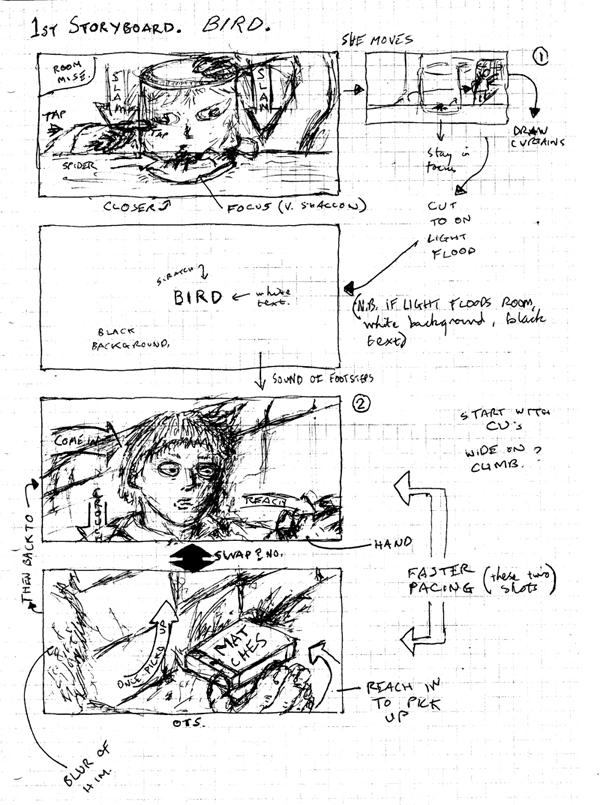 1ST STORYBOARD. BIRD.
SHE MOVES
ROOM
MISE.
SLAM
SLAM
1
TAP
TAP
SPIDER
CLOSER
FOCUS (V. SHALLOW)
DRAW
CURTAINS
Stay in
focus
CUT
TO ON
LIGHT
FLOOD
SCRATCH
BIRD
white
text.
BLACK
BACKGROUND.
(N.B. IF LIGHT FLOODS ROOM,
white background, black
text)
SOUND OF FOOTSTEPS
2
COME IN
REACH
START WITH
CU's
WIDE ON
CLIMB.
HAND
THEN BACK TO
SWAP
FASTER
PACING (these two
shots)
ONCE PICKD UP
MAT
CHES
REACH IN
TO PICK
UP
OTS.
BLUR OF
HIM.